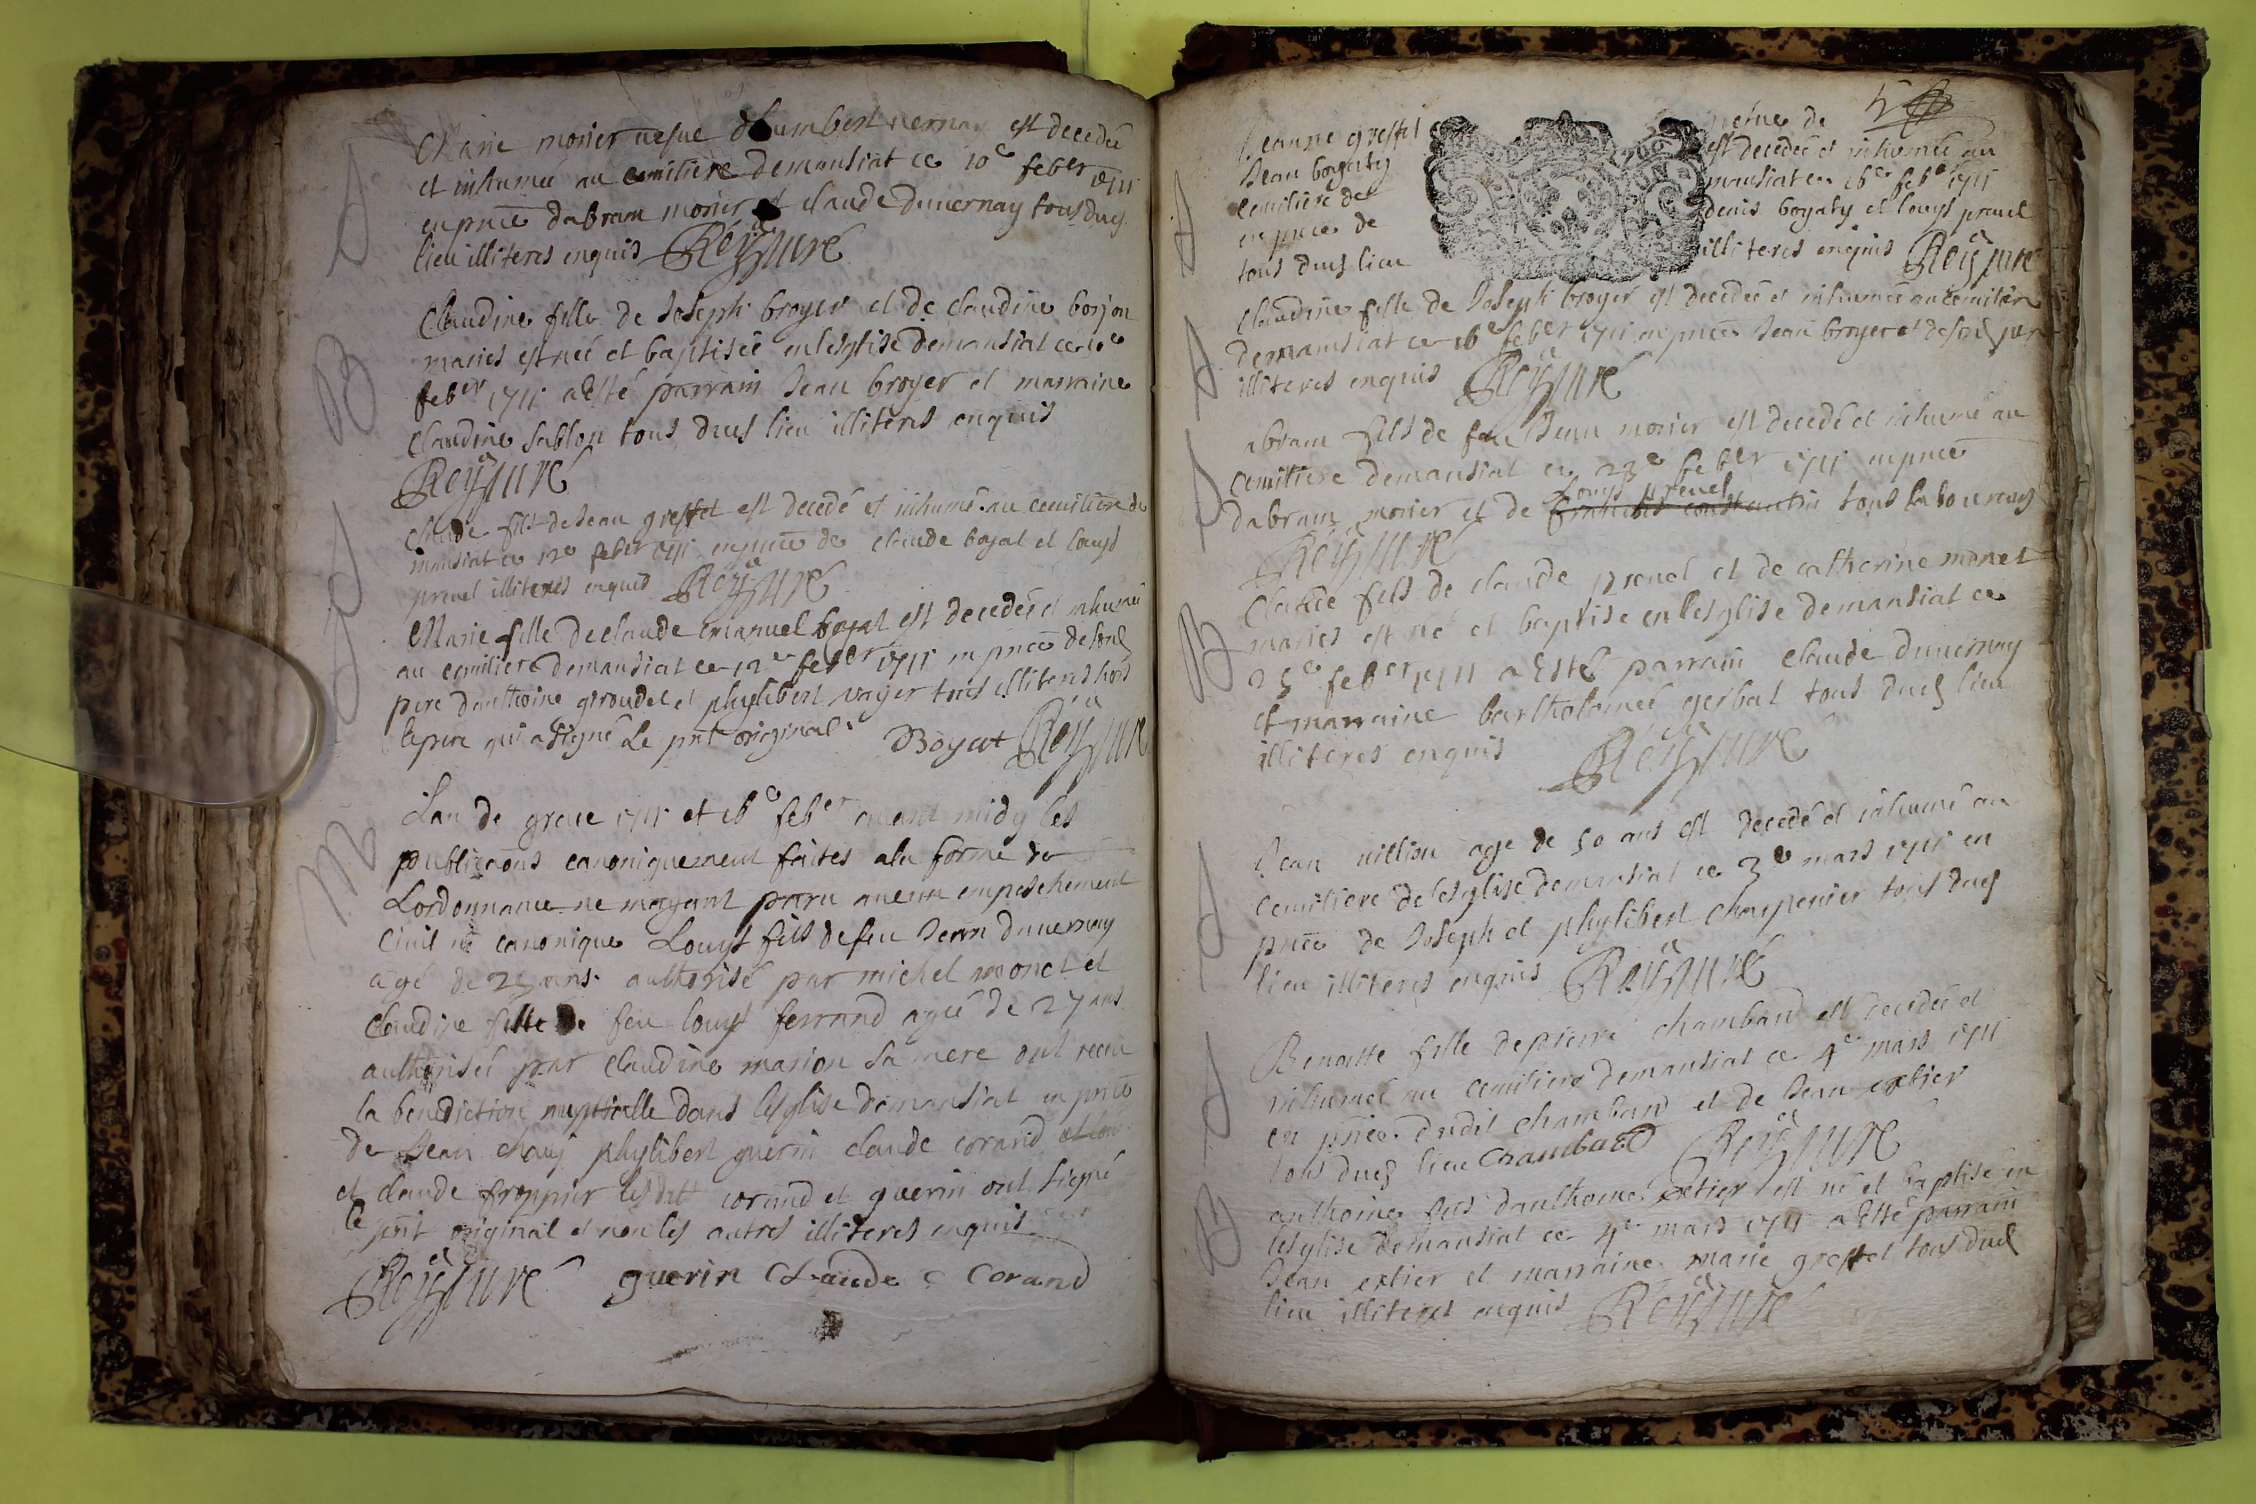 S
Marie morier vesve dhumbert vernay est decedée
et inhumée au cemitiere demansiat ce 10e feber 1711
en pnce dabram morier et claude duvernay tous dud
lieu illiteres enquis Reÿ jure
B
Claudine fille de Joseph broyer et de claudine borjon
maries est née et baptisée en lesglise demansiat ce
feber 1711 a Esté parrain Jean broyer et marraine
Claudine Sablon tous dud lieu illiteres enquis
Reÿ jure
S
Claude fils de Jean greffet est decedé et inhumé au cemitiere de
mansiat ce 12e feber 1711 en pnce de claude boyat et louys
prevel illiteres enquis Reÿ jure
S
Marie fille de claude emanuel boyat est decedée et inhumée
au cemitiere demansiat ce 12e feber 1711 en pnce de son
pere danthoine giroudet et phylibert voyer tous illiteres hors
le pere qui a signé Le pnt original Boyat Reÿ jure
M
Lan de grace 1711 et 16e feber avant midy les
publicaons canoniquement faites ala forme de
Lordonnance ne mayant paru aucun empeschement
Civil ni canonique Louys fils de feu Jean duvernay
agé de 25 ans authorisé par michel monet et
claudine fille de feu louys ferrand agée de 27 ans
authorisée par claudine marion sa mere ont receu
la benediction nuptialle dans lesglise demansiat en pnce
de Jean chauj phylibert guerin claude corand
et claude froppier lesdits corand et guerin ont signé
le pnt original et non les autres illiteres enquis
Reÿ jure guerin Claude C Corand
5
Jeanne greffet vesve de
Jean boyaty est decedée et inhumée au
cemitiere de mansiat ce 16e feber 1711
en pnce de denis boyaty et louys prevel
tous dud lieu illiteres enquis Reÿ jure
S
Claudine fille de Joseph broyer est decedée et inhumée au cemitiere
demansiat ce 16e feber 1711 en pnce Jean broyer et de son pere
illiteres enquis Reÿ jure
S
abram fils de feu Jean morier est decedé et inhumé au
cemitiere demansiat ce 23e feber 1711 en pnce
louys prevel
dabram morier et de tous laboureurs
Reÿ jure
B
Claude fils de claude prevel et de catherine monet
maries est né et baptisé en lesglise demansiat ce
25e feber 1711 a Esté parrain claude duvernay
et marraine bartholomée gerbat tous dud lieu
illiteres enquis Reÿ jure
S
Jean villion agé de 50 ans est decedé et inhumé au
cemitiere de lesglise demansiat ce 3e mars 1711 en
pnce de Joseph et phylibert charpenier tous dud
lieu illiteres enquis Reÿ jure
S
Benoitte fille de pierre chamband est decedée et
inhumée au cemitiere demansiat ce 4e mars 1711
en pnce dudit chamband et de Jean extier
tous dud lieu Chamband Reÿ jure
B
anthoine fils danthoine extier est né et baptisé en
lesglise demansiat ce 4e mars 1711 a Esté parrain
Jean extier et marraine marie greffet tous dud
lieu illiteres enquis Reÿ jure